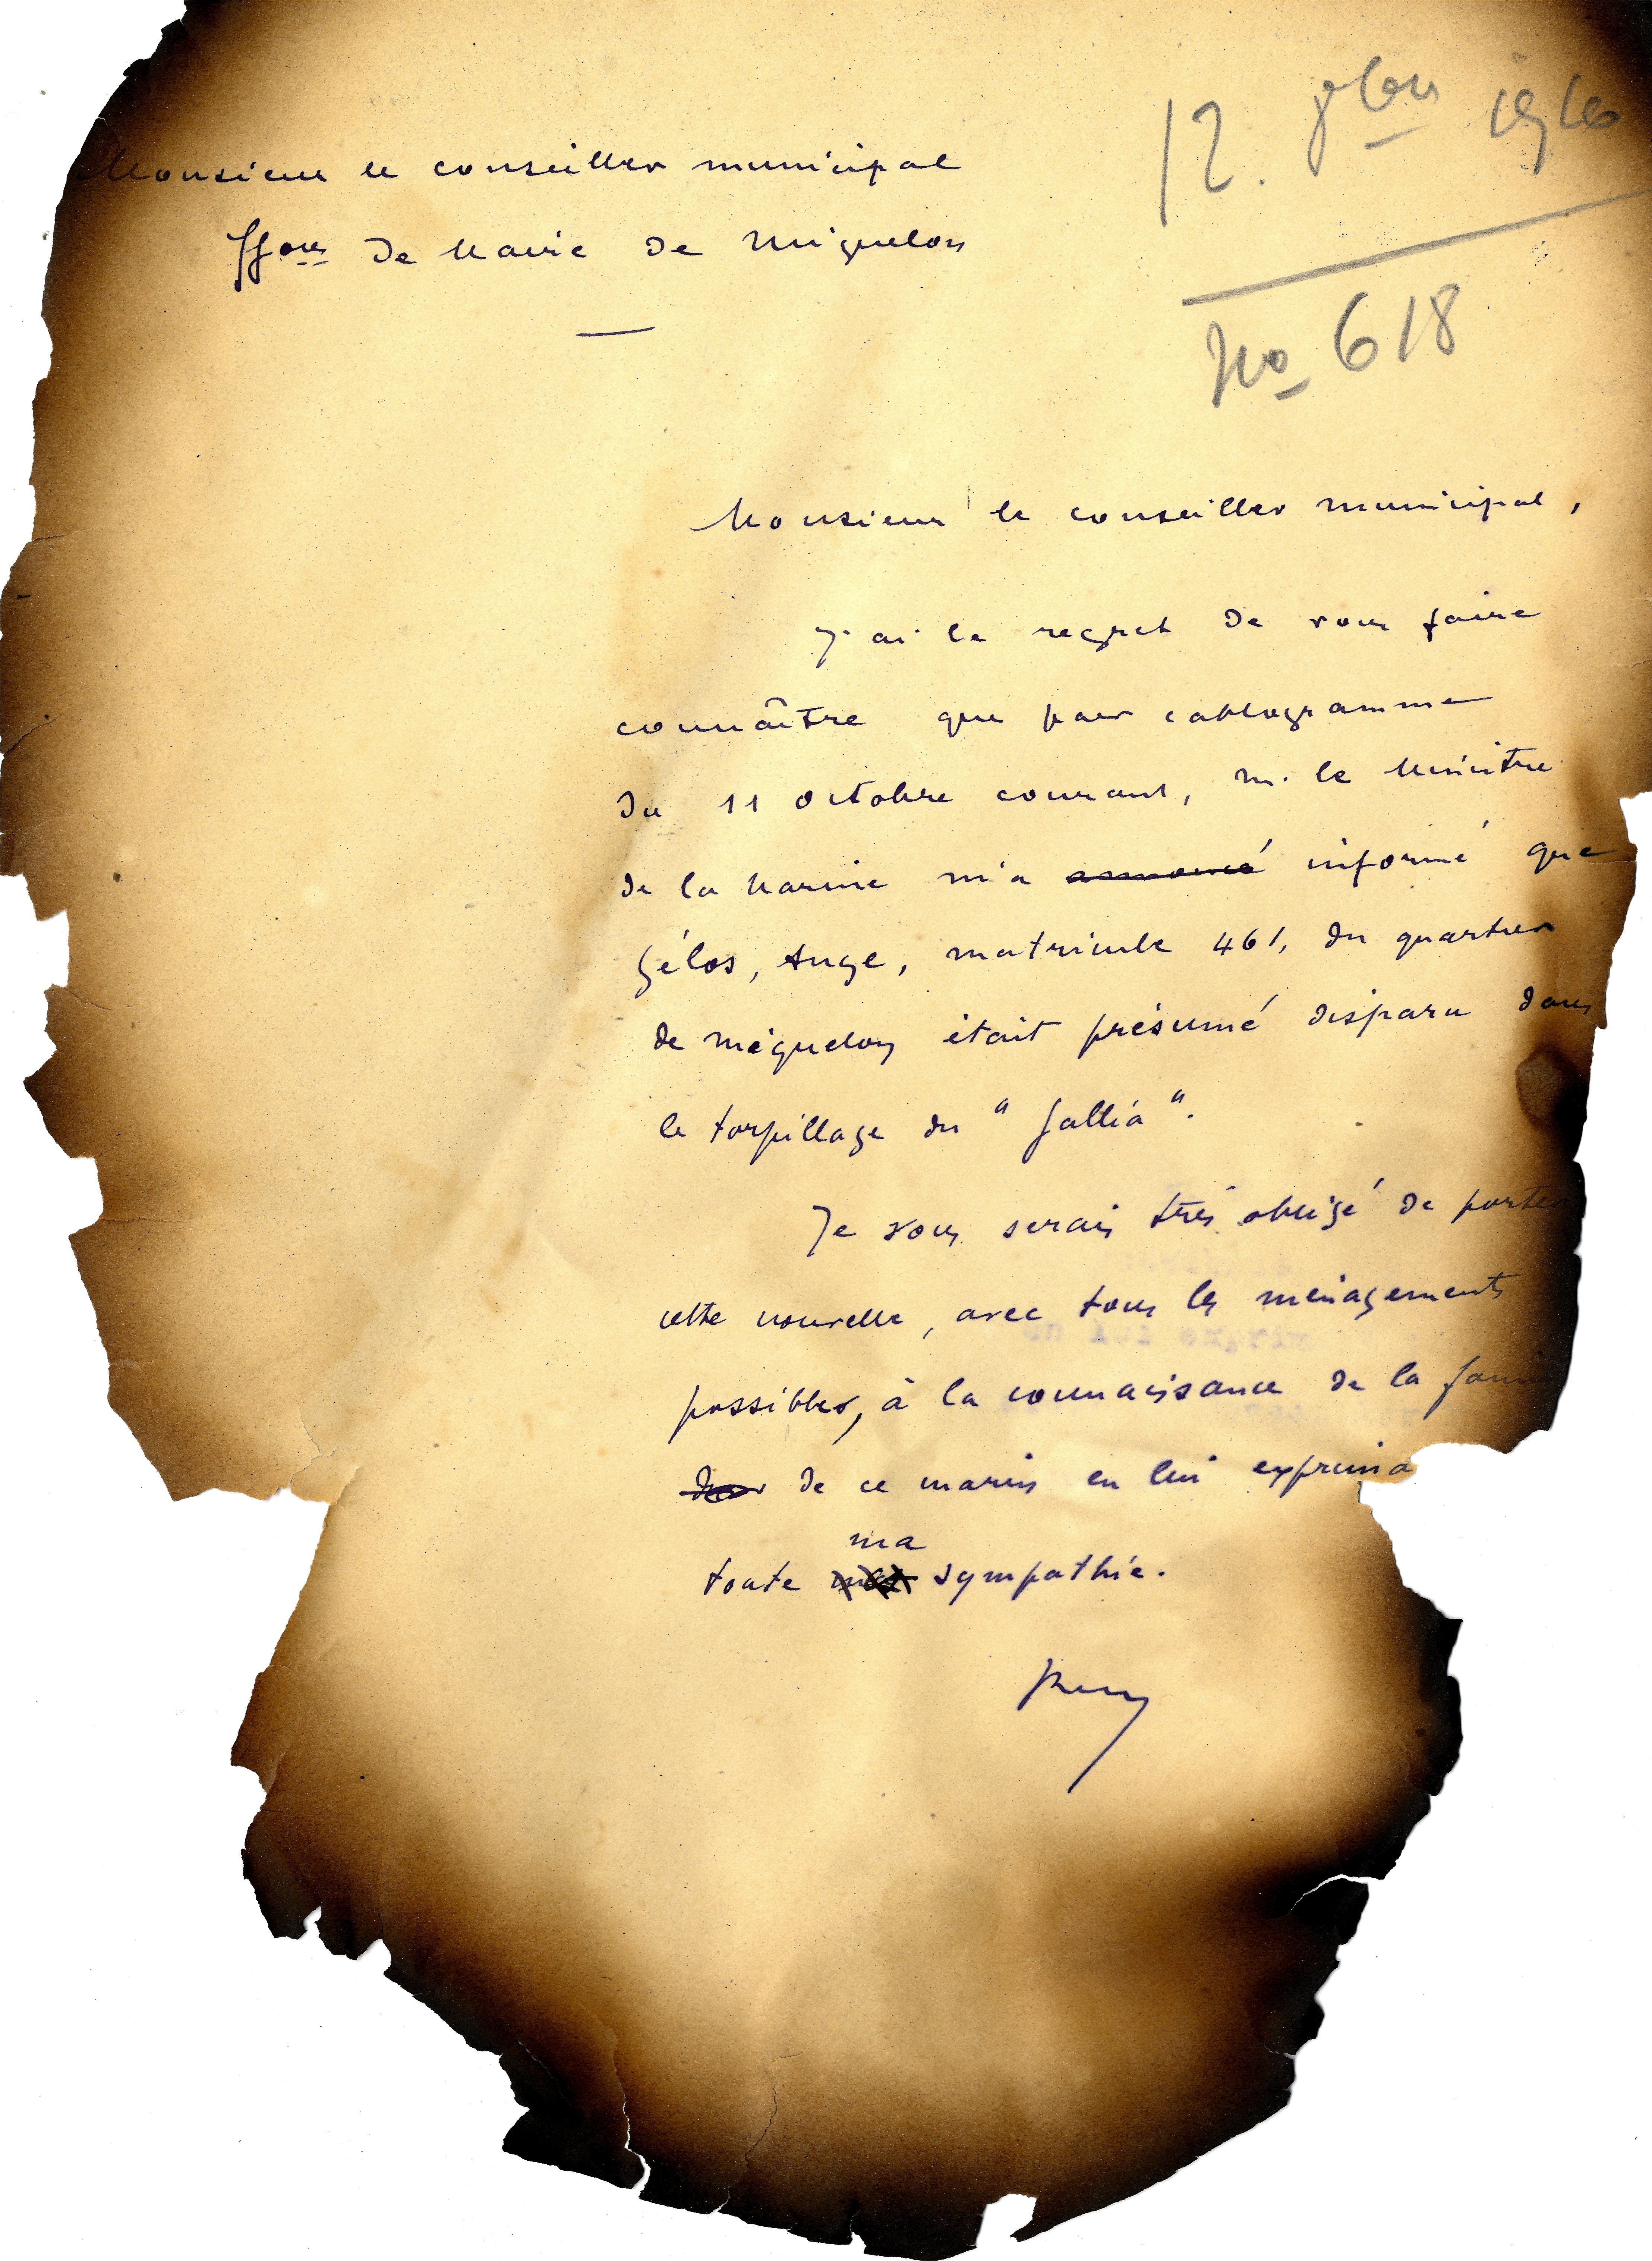 12. 8bre 1916
No 618
Monsieur le conseiller municipal
ffons de Maire de Miquelon
Monsieur le conseiller municipal,
J'ai le regret de vous faire
connaître que par cablogramme
du 11 octobre courant, M. le Ministre
de la Marine m'a annoncé informé que
Gélos, Ange, matricule 461, du quartier
de Miquelon était présumé disparu dans
le torpillage du "Gallia".
Je vous serais très obligé de porter
cette nouvelle, avec tous les ménagements
possibles, à la connaissance de la fami
de ce marin en lui exprima
ma
toute sympathie.